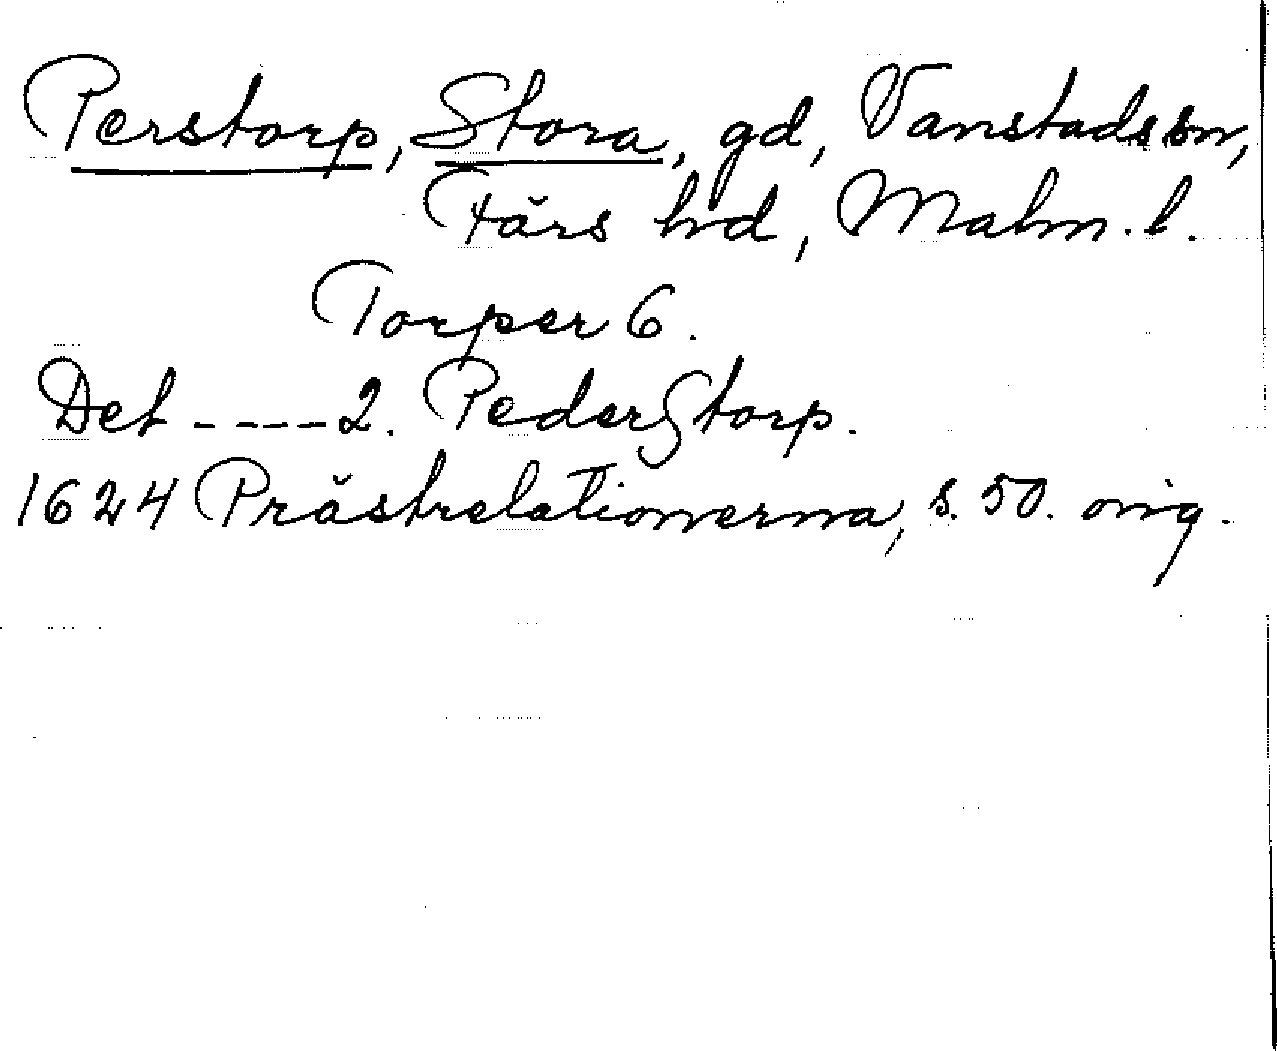 Perstorp, Stora, gd, Vanstads sn,
Färs hd, Malm. l.
Torper 6.
Det ----2. Pederstorp.
1624 Prästrelationerna, s. 50. orig.